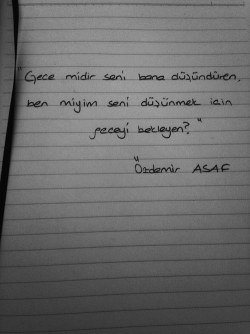 "Gece midir seni bana düşündüren,
ben miyim seni düşünmek için
geceyi bekleyen?"
Özdemir ASAF